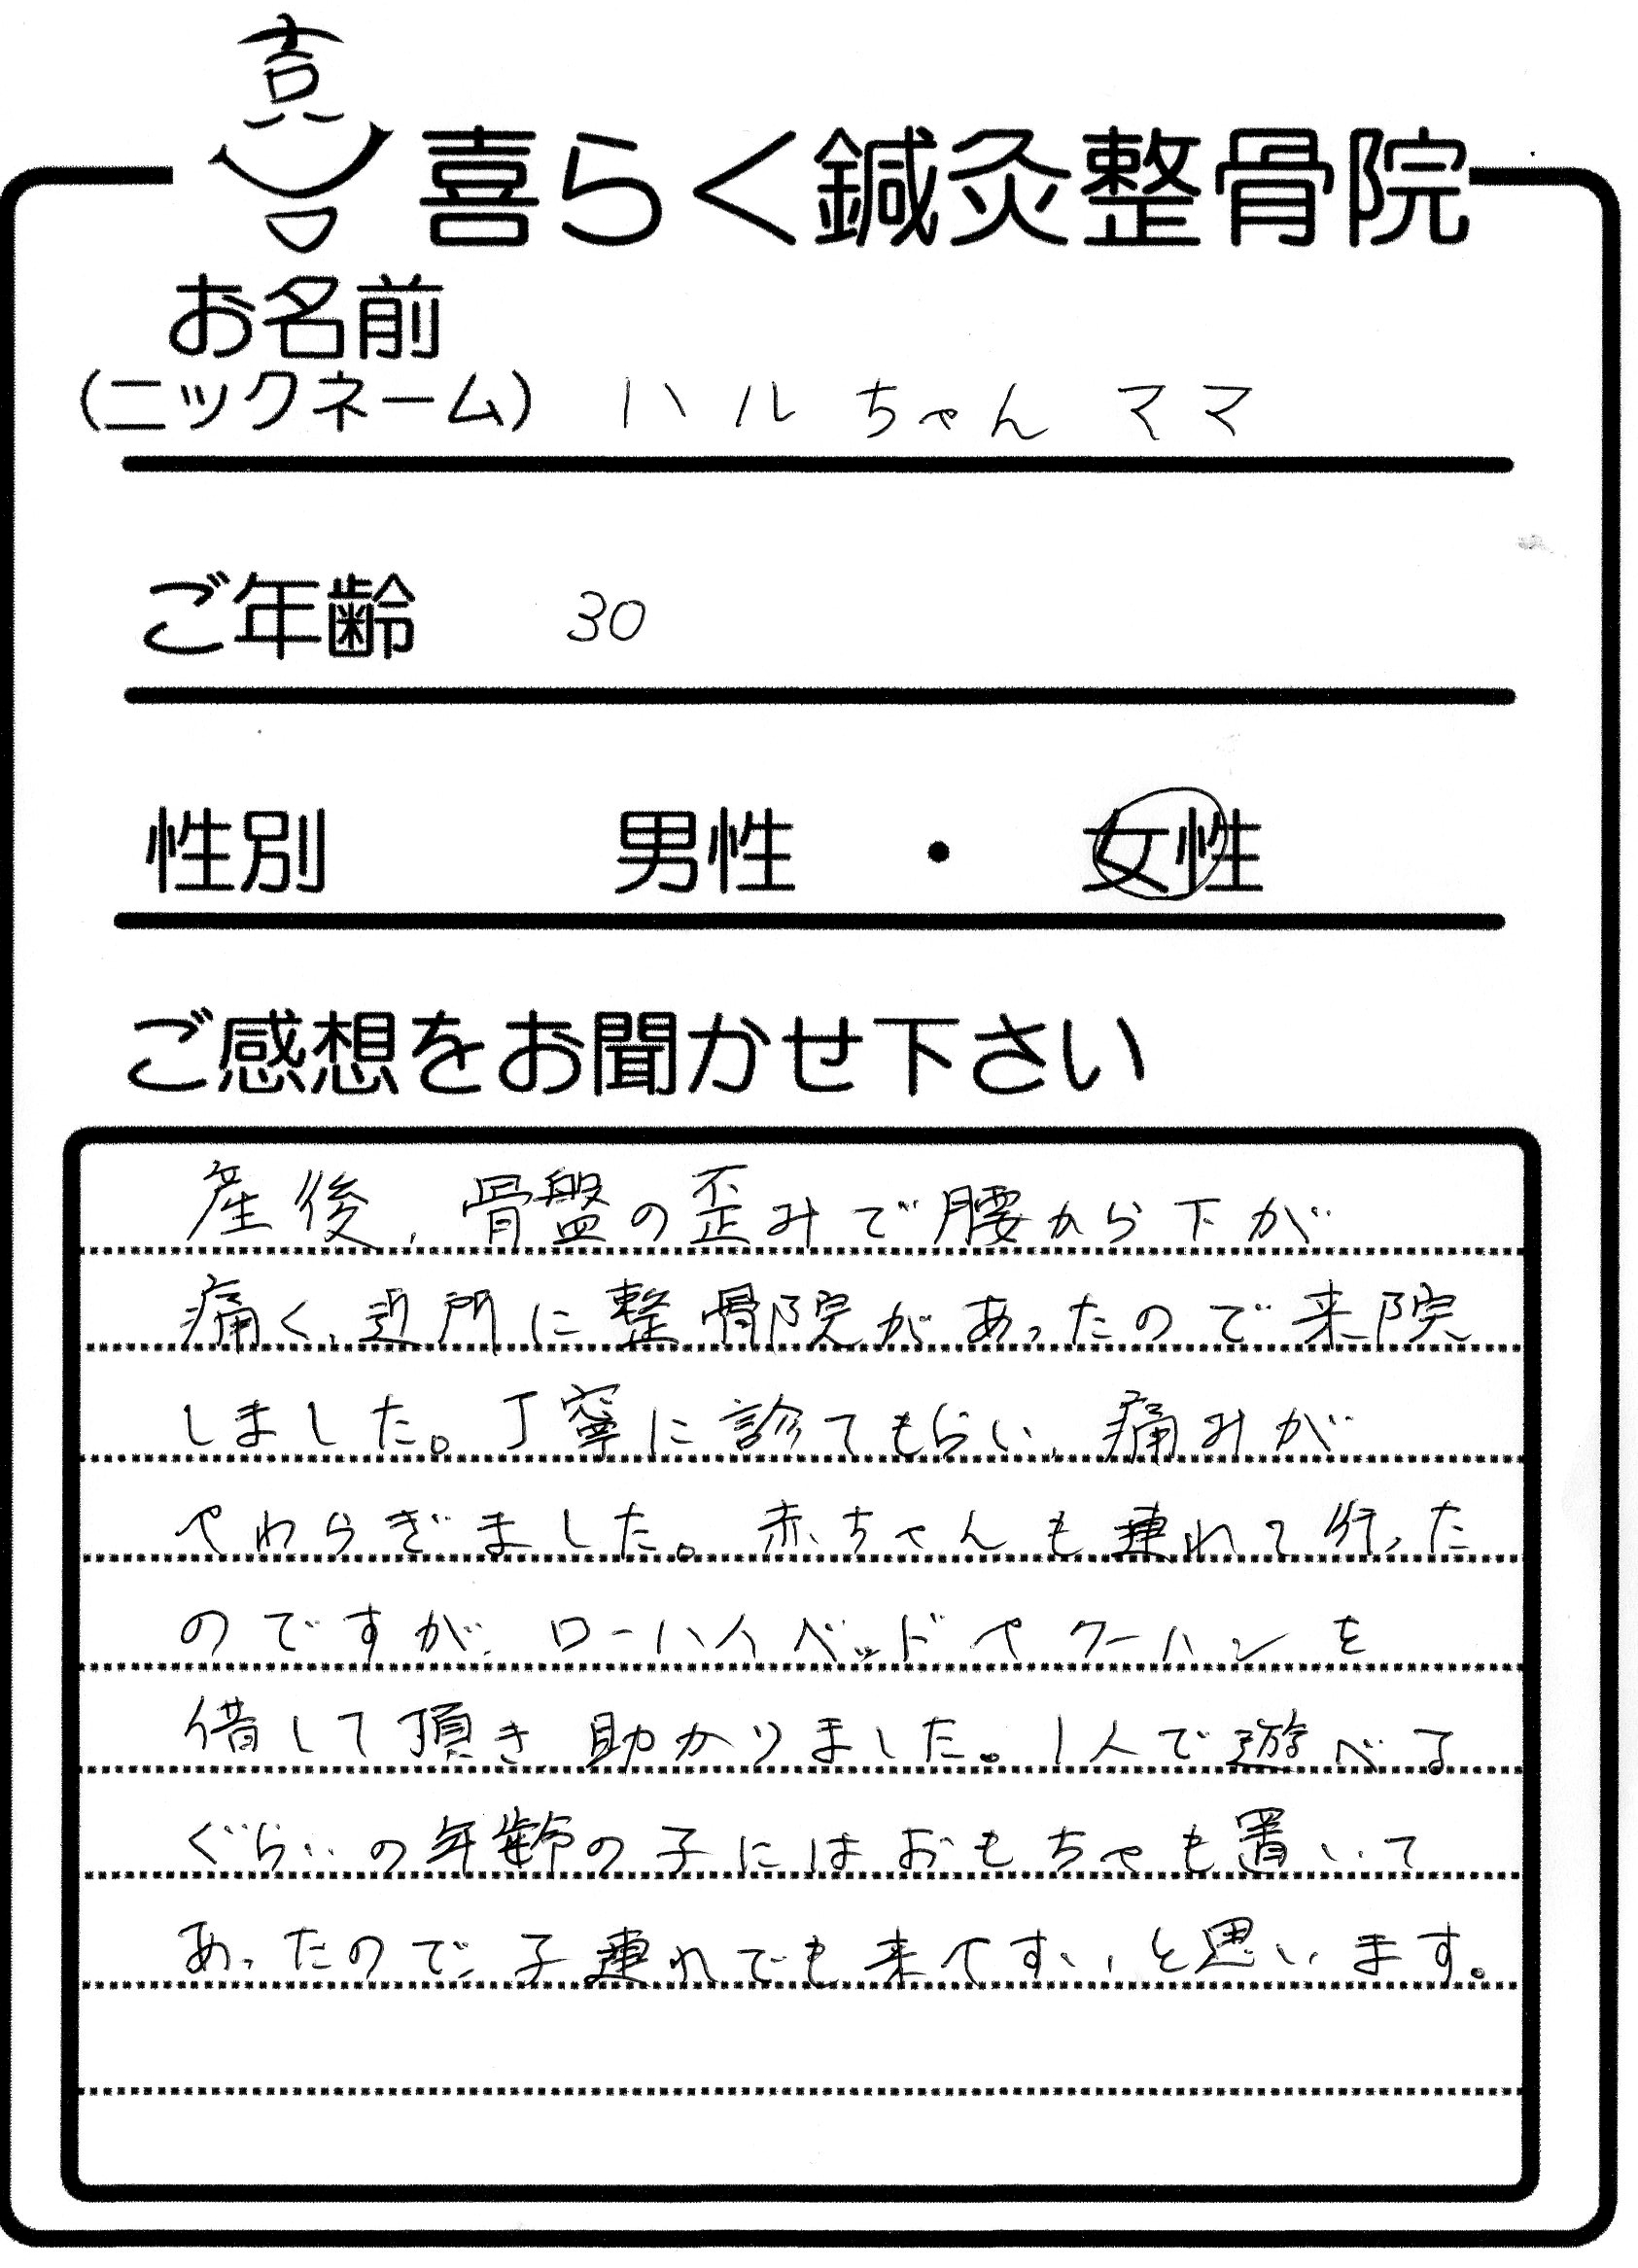 喜らく鍼灸整骨院
お名前
(ニックネーム) ハルちゃんママ
ご年齢 30
性別 男性 ・ 女性
ご感想をお聞かせ下さい
産後、骨盤の歪みで腰から下が
痛く、近所に整骨院があったので来院
しました。丁寧に診てもらい、痛みが
やわらぎました。赤ちゃんも連れて行った
のですが、ローハイベッドやクーハンを
借して頂き助かりました。1人で遊べる
ぐらいの年齢の子にはおもちゃも置いて
あったので、子連れでも来やすいと思います。